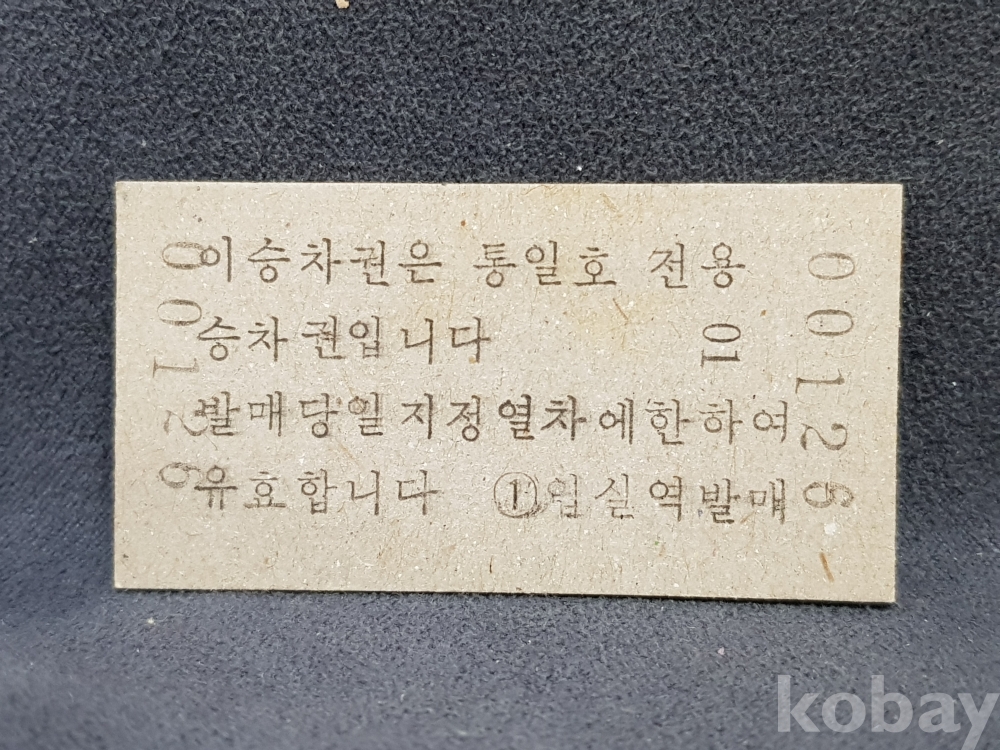 이승차권은 통일호 전용
승차권입니다
01
발매당일지정열차에한하여
유효합니다 ①임실역발매
00126
00126
kobay